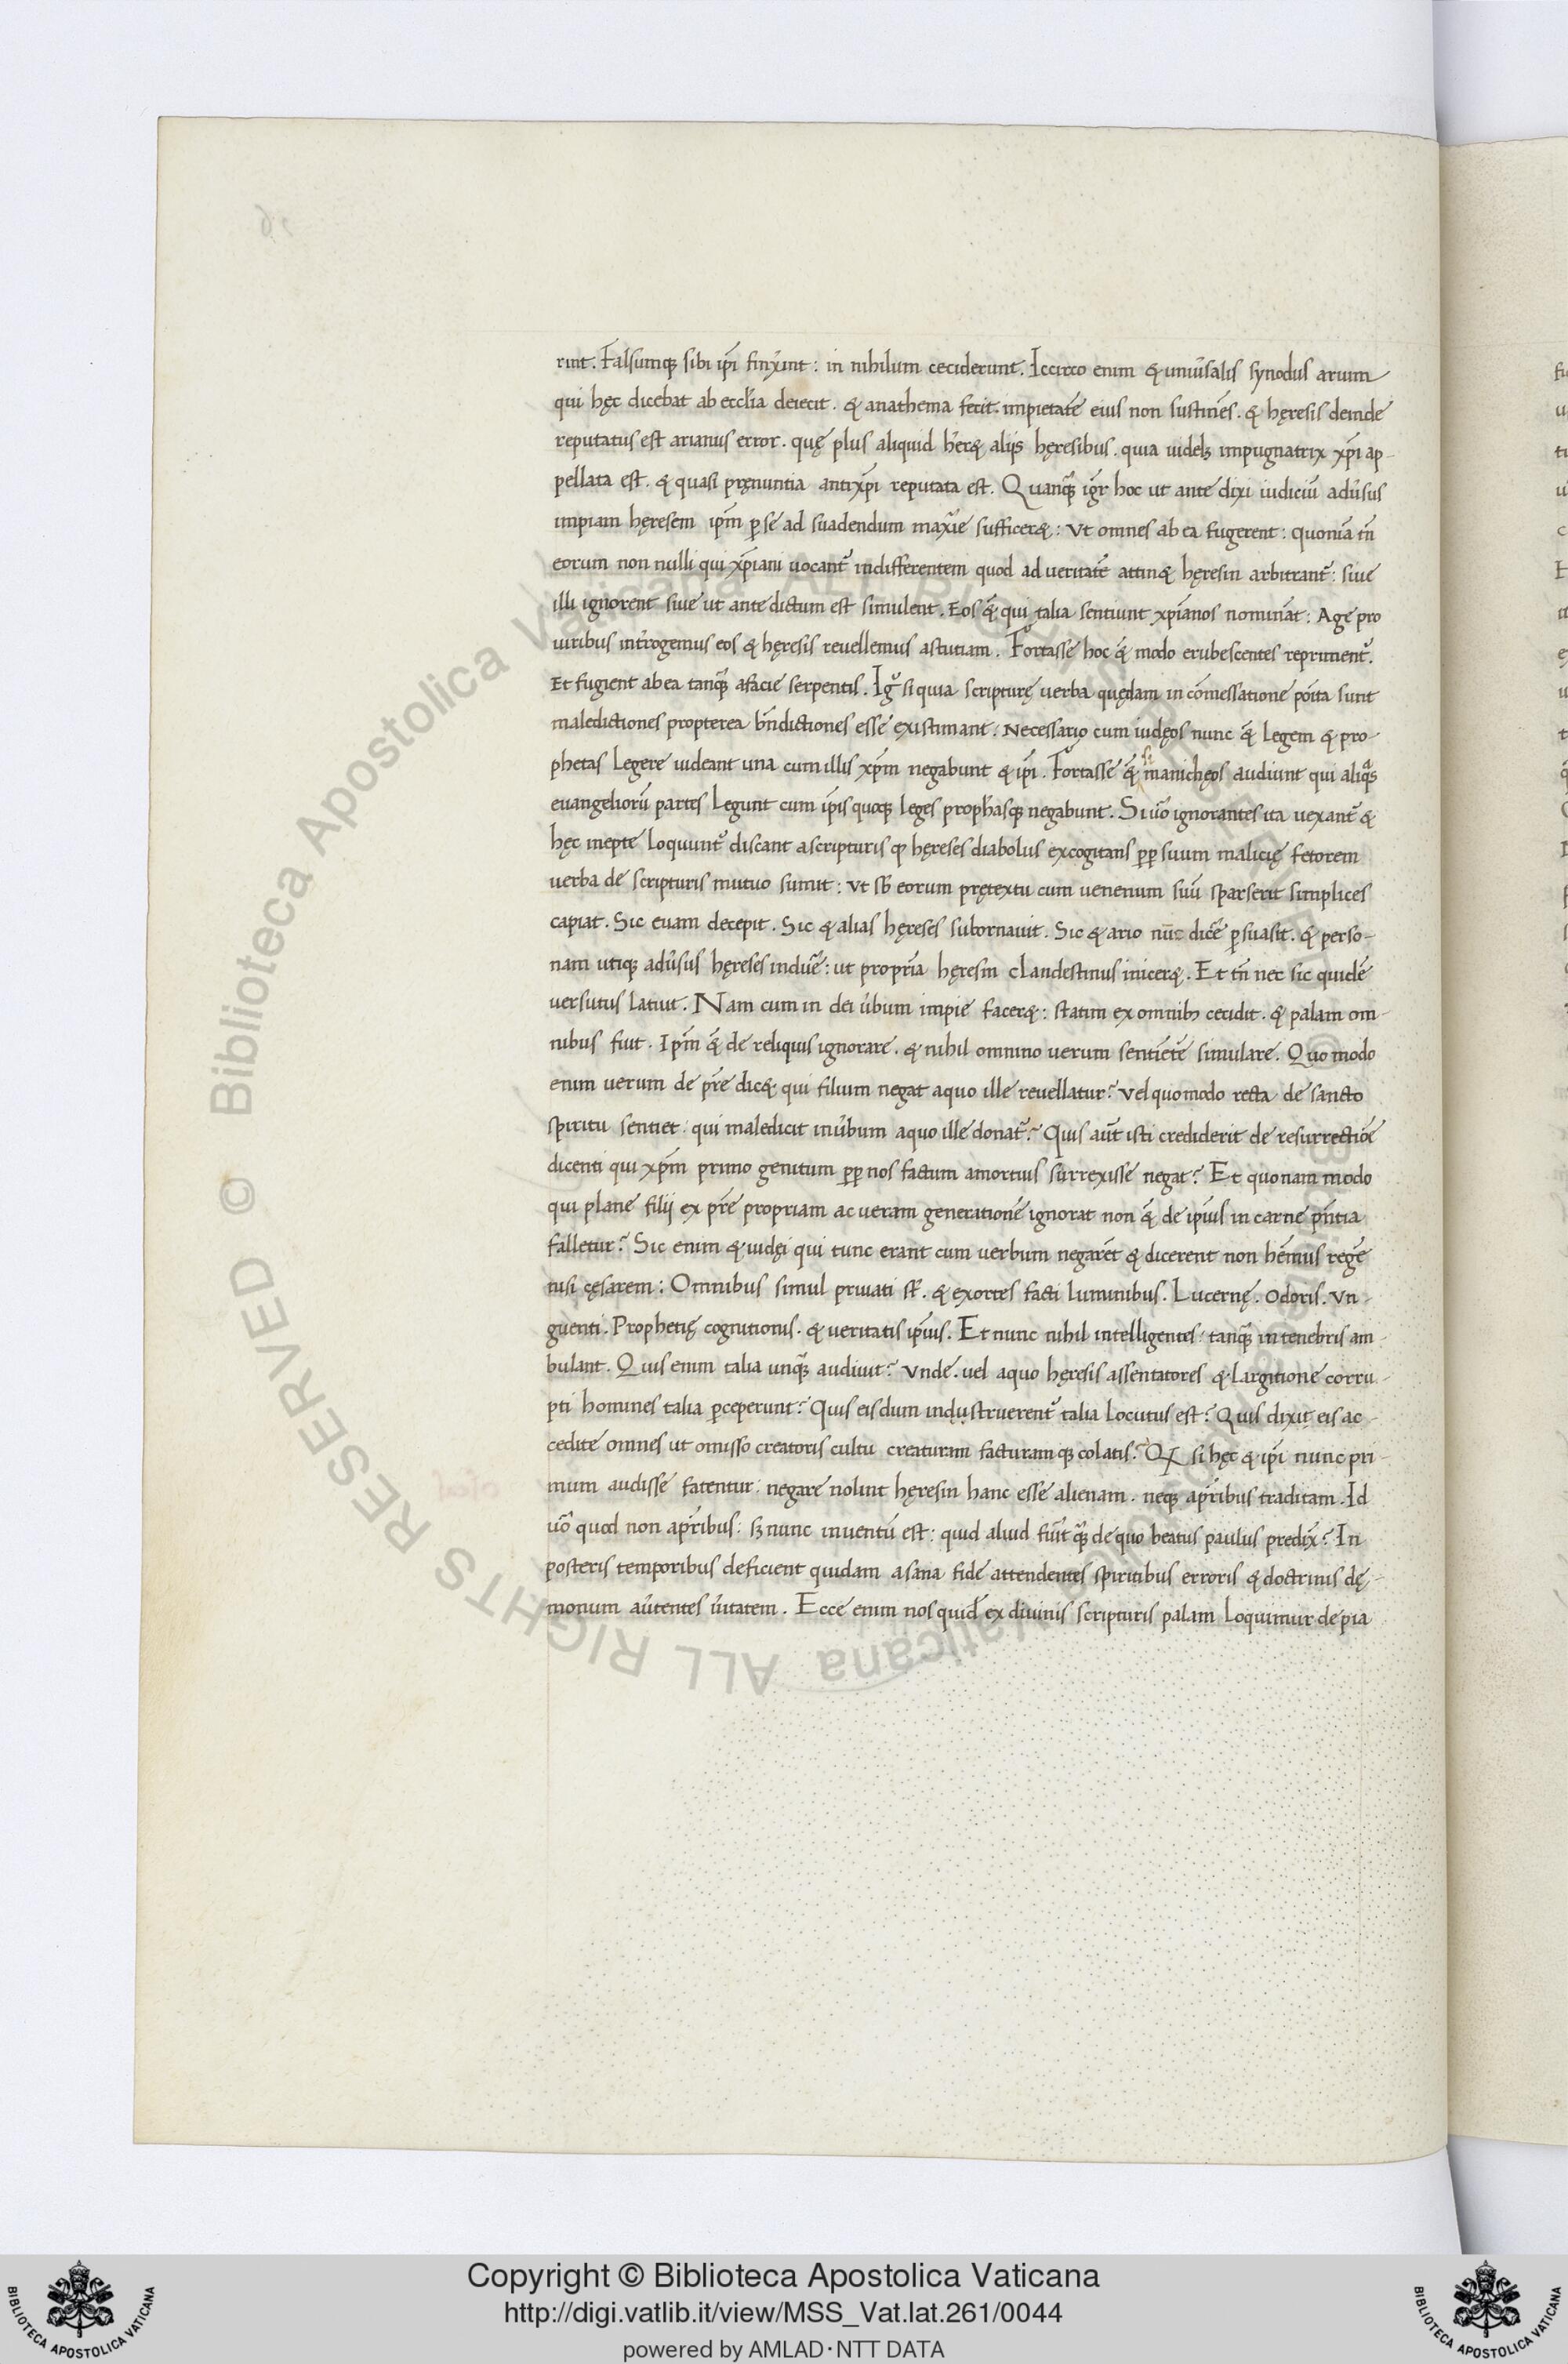 rint. Falsumq; sibi ip̄i finxerint: in nihilum ceciderunt. Iccirco enim & uniũsalis synodus arium
qui hęc dicebat ab eccl̃ia deiecit. & anathema fecit. impietatẽ eius non sustinẽs. & hęresis deinde
reputatus est arianus error. quę plus aliquid h̃er& aliis hęresibus. quia uidel; impugnatrix xp̄i ap-
pellata est. & quasi pręnuntia antixp̄i reputata est. Quanq̃; igr̃ hoc ut ante dixi iudiciũ adũsus
impiam hęresem ip̄m p se ad suadendum maxĩe sufficer&: Vt omnes ab ea fugerent: quoniã tñ
eorum non nulli qui xp̄iani uocant᷑ indifferentem quod ad ueritatẽ attin& hęresin arbitrant᷑: siue
illi ignorent siue ut ante dictum est simulent. Eos q̃ qui talia sentiunt xp̄ianos nominãt: Age pro
uiribus int̃rogemus eos & hęresis reuellemus astutiam. Fortasse hoc q̃ modo erubescentes repriment᷑.
Et fugient ab ea tanq̃; a facie serpentis. Ig᷑ si quia scripturę uerba quędam in cõmessatione põita sunt
maledictiones propterea bñdictiones esse existimant. Necessario cum iudęos nunc q̃ legem & pro-
phetas legere uideant una cum illis xp̄m negabunt & ip̄i. Fortasse q̃ si manichęos audiunt qui aliq̃s
euangeliorũ partes legunt cum ip̄is quoq; leges proph̃asq; negabunt. Si uõ ignorantes ita uexant᷑ &
hęc inepte loquunt᷑ discant a scripturis qp hęreses diabolus excogitans pp suum malicię fetorem
uerba de scripturis mutuo sumit: Vt sb̃ eorum pretextu cum uenenum suũ sparserit simplices
capiat. Sic euam decepit. Sic & alias hęreses subornauit. Sic & ario nũc dicẽ psuasit. & perso-
nam utiq; adũsus hęreses induẽ: ut propria hęresin clandestinus inicer&. Et tñ nec sic quidẽ
uersutus latuit. Nam cum in dei ũbum impie facer&: statim ex omnib; cecidit. & palam om-
nibus fuit. Ip̄m q̃ de reliquis ignorare. & nihil omnino uerum sentiẽtẽ simulare. Quo modo
enim uerum de p̃re dic& qui filium negat a quo ille reuellatur? Vel quo modo recta de sancto
spiritu sentiet qui maledicit in ũbum a quo ille donat᷑? Quis aũt isti crediderit de resurrectiõe
dicenti qui xp̄m primo genitum pp nos factum a mortuis surrexisse negat? Et quonam modo
qui plane filii ex p̃re propriam ac ueram generationẽ ignorat non q̃ de ip̄ius in carne p̃ntia
falletur? Sic enim & iudęi qui tunc erant cum uerbum negarẽt & dicerent non hẽmus regẽ
nisi cęsarem: Omnibus simul priuati st̃. & exortes facti luminibus. Lucernę. Odoris. Vn-
guenti. Prophetię cognitionis. & ueritatis ip̄ius. Et nunc nihil intelligentes tanq̃; in tenebris am-
bulant. Quis enim talia unq̃; audiuit? Vnde. uel a quo hęresis assentatores & largitione corru-
pti homines talia pceperunt? Quis eis dum industruerent᷑ talia locutus est? Quis dixit eis ac-
cedite omnes ut omisso creatoris cultu creaturam facturamq; colatis? Qđ si hęc & ip̄i nunc pri-
mum audisse fatentur: negare nolint hęresin hanc esse alienam. neq; a p̃ribus traditam. Id
uõ quod non a p̃ribus: s; nunc inuentũ est: quid aliud fuĩt q̃; de quo beatus paulus predix̃? In
posteris temporibus deficient quidam a sana fide attendentes spiritibus erroris & doctrinis dę-
monum aũtentes ũitatem. Ecce enim nos quidẽ ex diuinis scripturis palam loquimur de pia
© Biblioteca Apostolica Vaticana ALL RIGHTS RESERVED
Copyright © Biblioteca Apostolica Vaticana
http://digi.vatlib.it/view/MSS_Vat.lat.261/0044
powered by AMLAD·NTT DATA
BIBLIOTECA APOSTOLICA VATICANA
BIBLIOTECA APOSTOLICA VATICANA